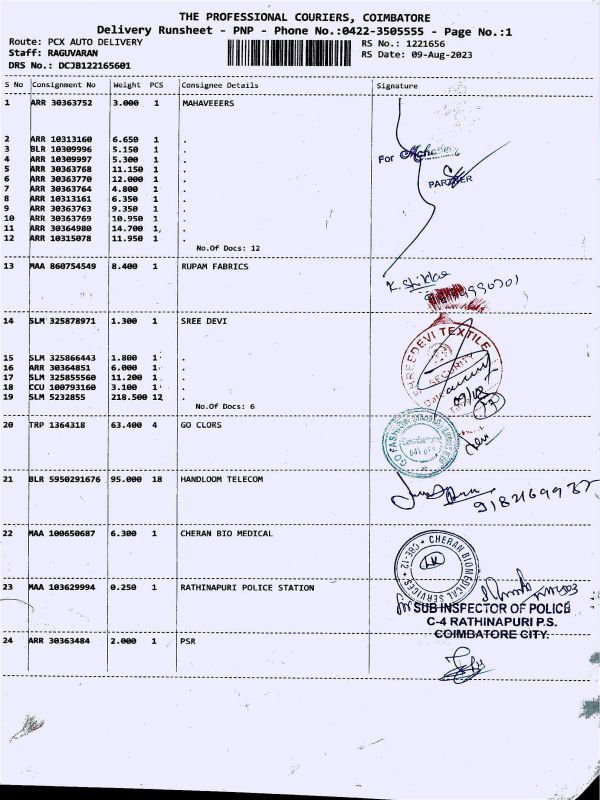 THE PROFESSIONAL COURIERS, COIMBATORE
Delivery Runsheet - PNP - Phone No.:0422-3505555 - Page No.:1
Route: PCX AUTO DELIVERY
RS No.: 1221656
Staff: RAGUVARAN
RS Date: 09-Aug-2023
DRS No.: DCJB122165601
S No Consignment No Weight PCS Consignee Details Signature
1 ARR 30363752 3.000 1 MAHAVEEERS
2 ARR 10313160 6.650 1 .
3 BLR 10309996 5.150 1 .
4 ARR 10309997 5.300 1 .
5 ARR 30363768 11.150 1 .
6 ARR 30363770 12.000 1 .
7 ARR 30363764 4.800 1 .
8 ARR 10313161 6.350 1 .
9 ARR 30363763 9.350 1 .
10 ARR 30363769 10.950 1 .
11 ARR 30364980 14.700 1 .
12 ARR 10315078 11.950 1 .
For
PARTNER
No.Of Docs: 12
13 MAA 860754549 8.400 1 RUPAM FABRICS
14 SLM 325878971 1.300 1 SREE DEVI
SHREEDEVI TEXTILE
SECURITY
15 SLM 325866443 1.800 1 .
16 ARR 30364851 6.000 1 .
17 SLM 325855560 11.200 1 .
18 CCU 100793160 3.100 1 .
19 SLM 5232855 218.500 12 .
No.Of Docs: 6
20 TRP 1364318 63.400 4 GO CLORS
21 BLR 5950291676 95.000 18 HANDLOOM TELECOM
22 MAA 100650687 6.300 1 CHERAN BIO MEDICAL
CHERAN BIOMEDICAL SERVICES
CBE-12
23 MAA 103629994 0.250 1 RATHINAPURI POLICE STATION
SUB INSPECTOR OF POLICE
C-4 RATHINAPURI P.S.
COIMBATORE CITY.
24 ARR 30363484 2.000 1 PSR